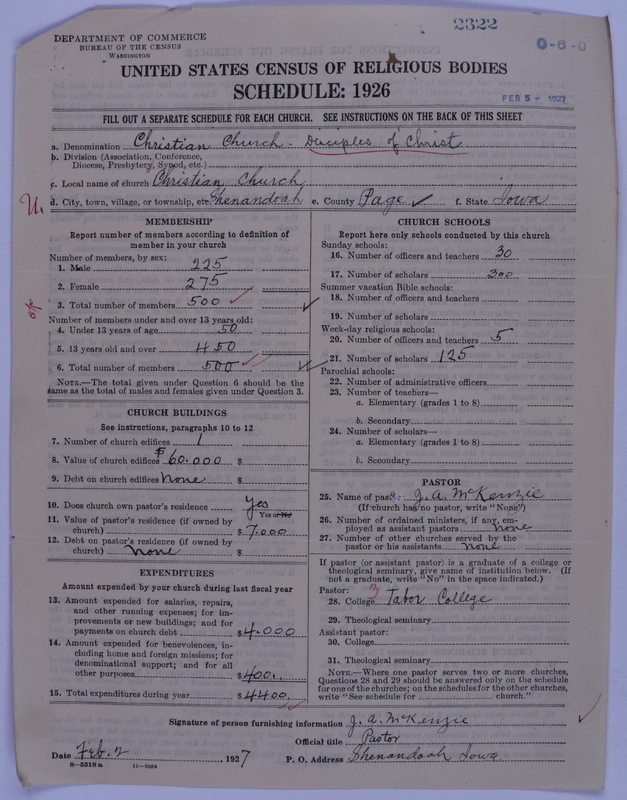 2322
0-6-0
DEPARTMENT OF COMMERCE
BUREAU OF THE CENSUS
WASHINGTON
UNITED STATES CENSUS OF RELIGIOUS BODIES
SCHEDULE: 1926
FEB 5 - 1927
FILL OUT A SEPARATE SCHEDULE FOR EACH CHURCH. SEE INSTRUCTIONS ON THE BACK OF THIS SHEET
a. Denomination Christian Church - Disciples of Christ
b. Division (Association, Conference,
Diocese, Presbytery, Synod, etc.)
c. Local name of church Christian Church
d. City, town, village, or township, etc. Shenandoah e. County Page ✓ f. State Iowa
MEMBERSHIP
Report number of members according to definition of
member in your church
Number of members, by sex:
1. Male 225
2. Female 275
3. Total number of members 500
Number of members under and over 13 years old:
4. Under 13 years of age 50
5. 13 years old and over 450
6. Total number of members 500
NOTE.—The total given under Question 6 should be the
same as the total of males and females given under Question 3.
CHURCH BUILDINGS
See instructions, paragraphs 10 to 12
7. Number of church edifices 1
8. Value of church edifices $60.000 $
9. Debt on church edifices None $
10. Does church own pastor's residence Yes
Yes or No
11. Value of pastor's residence (if owned by
church) $7.000
12. Debt on pastor's residence (if owned by
church) None $
EXPENDITURES
Amount expended by your church during last fiscal year
13. Amount expended for salaries, repairs,
and other running expenses; for im-
provements or new buildings; and for
payments on church debt $4.000
14. Amount expended for benevolences, in-
cluding home and foreign missions; for
denominational support; and for all
other purposes $400.
15. Total expenditures during year $4400
CHURCH SCHOOLS
Report here only schools conducted by this church
Sunday schools:
16. Number of officers and teachers 30
17. Number of scholars 300
Summer vacation Bible schools:
18. Number of officers and teachers
19. Number of scholars
Week-day religious schools:
20. Number of officers and teachers 5
21. Number of scholars 125
Parochial schools:
22. Number of administrative officers
23. Number of teachers—
a. Elementary (grades 1 to 8)
b. Secondary
24. Number of scholars—
a. Elementary (grades 1 to 8)
b. Secondary
PASTOR
25. Name of pastor J. A. McKenzie
(If church has no pastor, write "None")
26. Number of ordained ministers, if any, em-
ployed as assistant pastors none
27. Number of other churches served by the
pastor or his assistants none
If pastor (or assistant pastor) is a graduate of a college or
theological seminary, give name of institution below. (If
not a graduate, write "No" in the space indicated.)
Pastor:
28. College 3 Tabor College
29. Theological seminary
Assistant pastor:
30. College
31. Theological seminary
NOTE.—Where one pastor serves two or more churches,
Questions 28 and 29 should be answered only on the schedule
for one of the churches; on the schedules for the other churches,
write "See schedule for church."
Signature of person furnishing information J. A. McKenzie
Official title Pastor
Date Feb. 2, 1927 P. O. Address Shenandoah Iowa.
8-5518a 11-9034